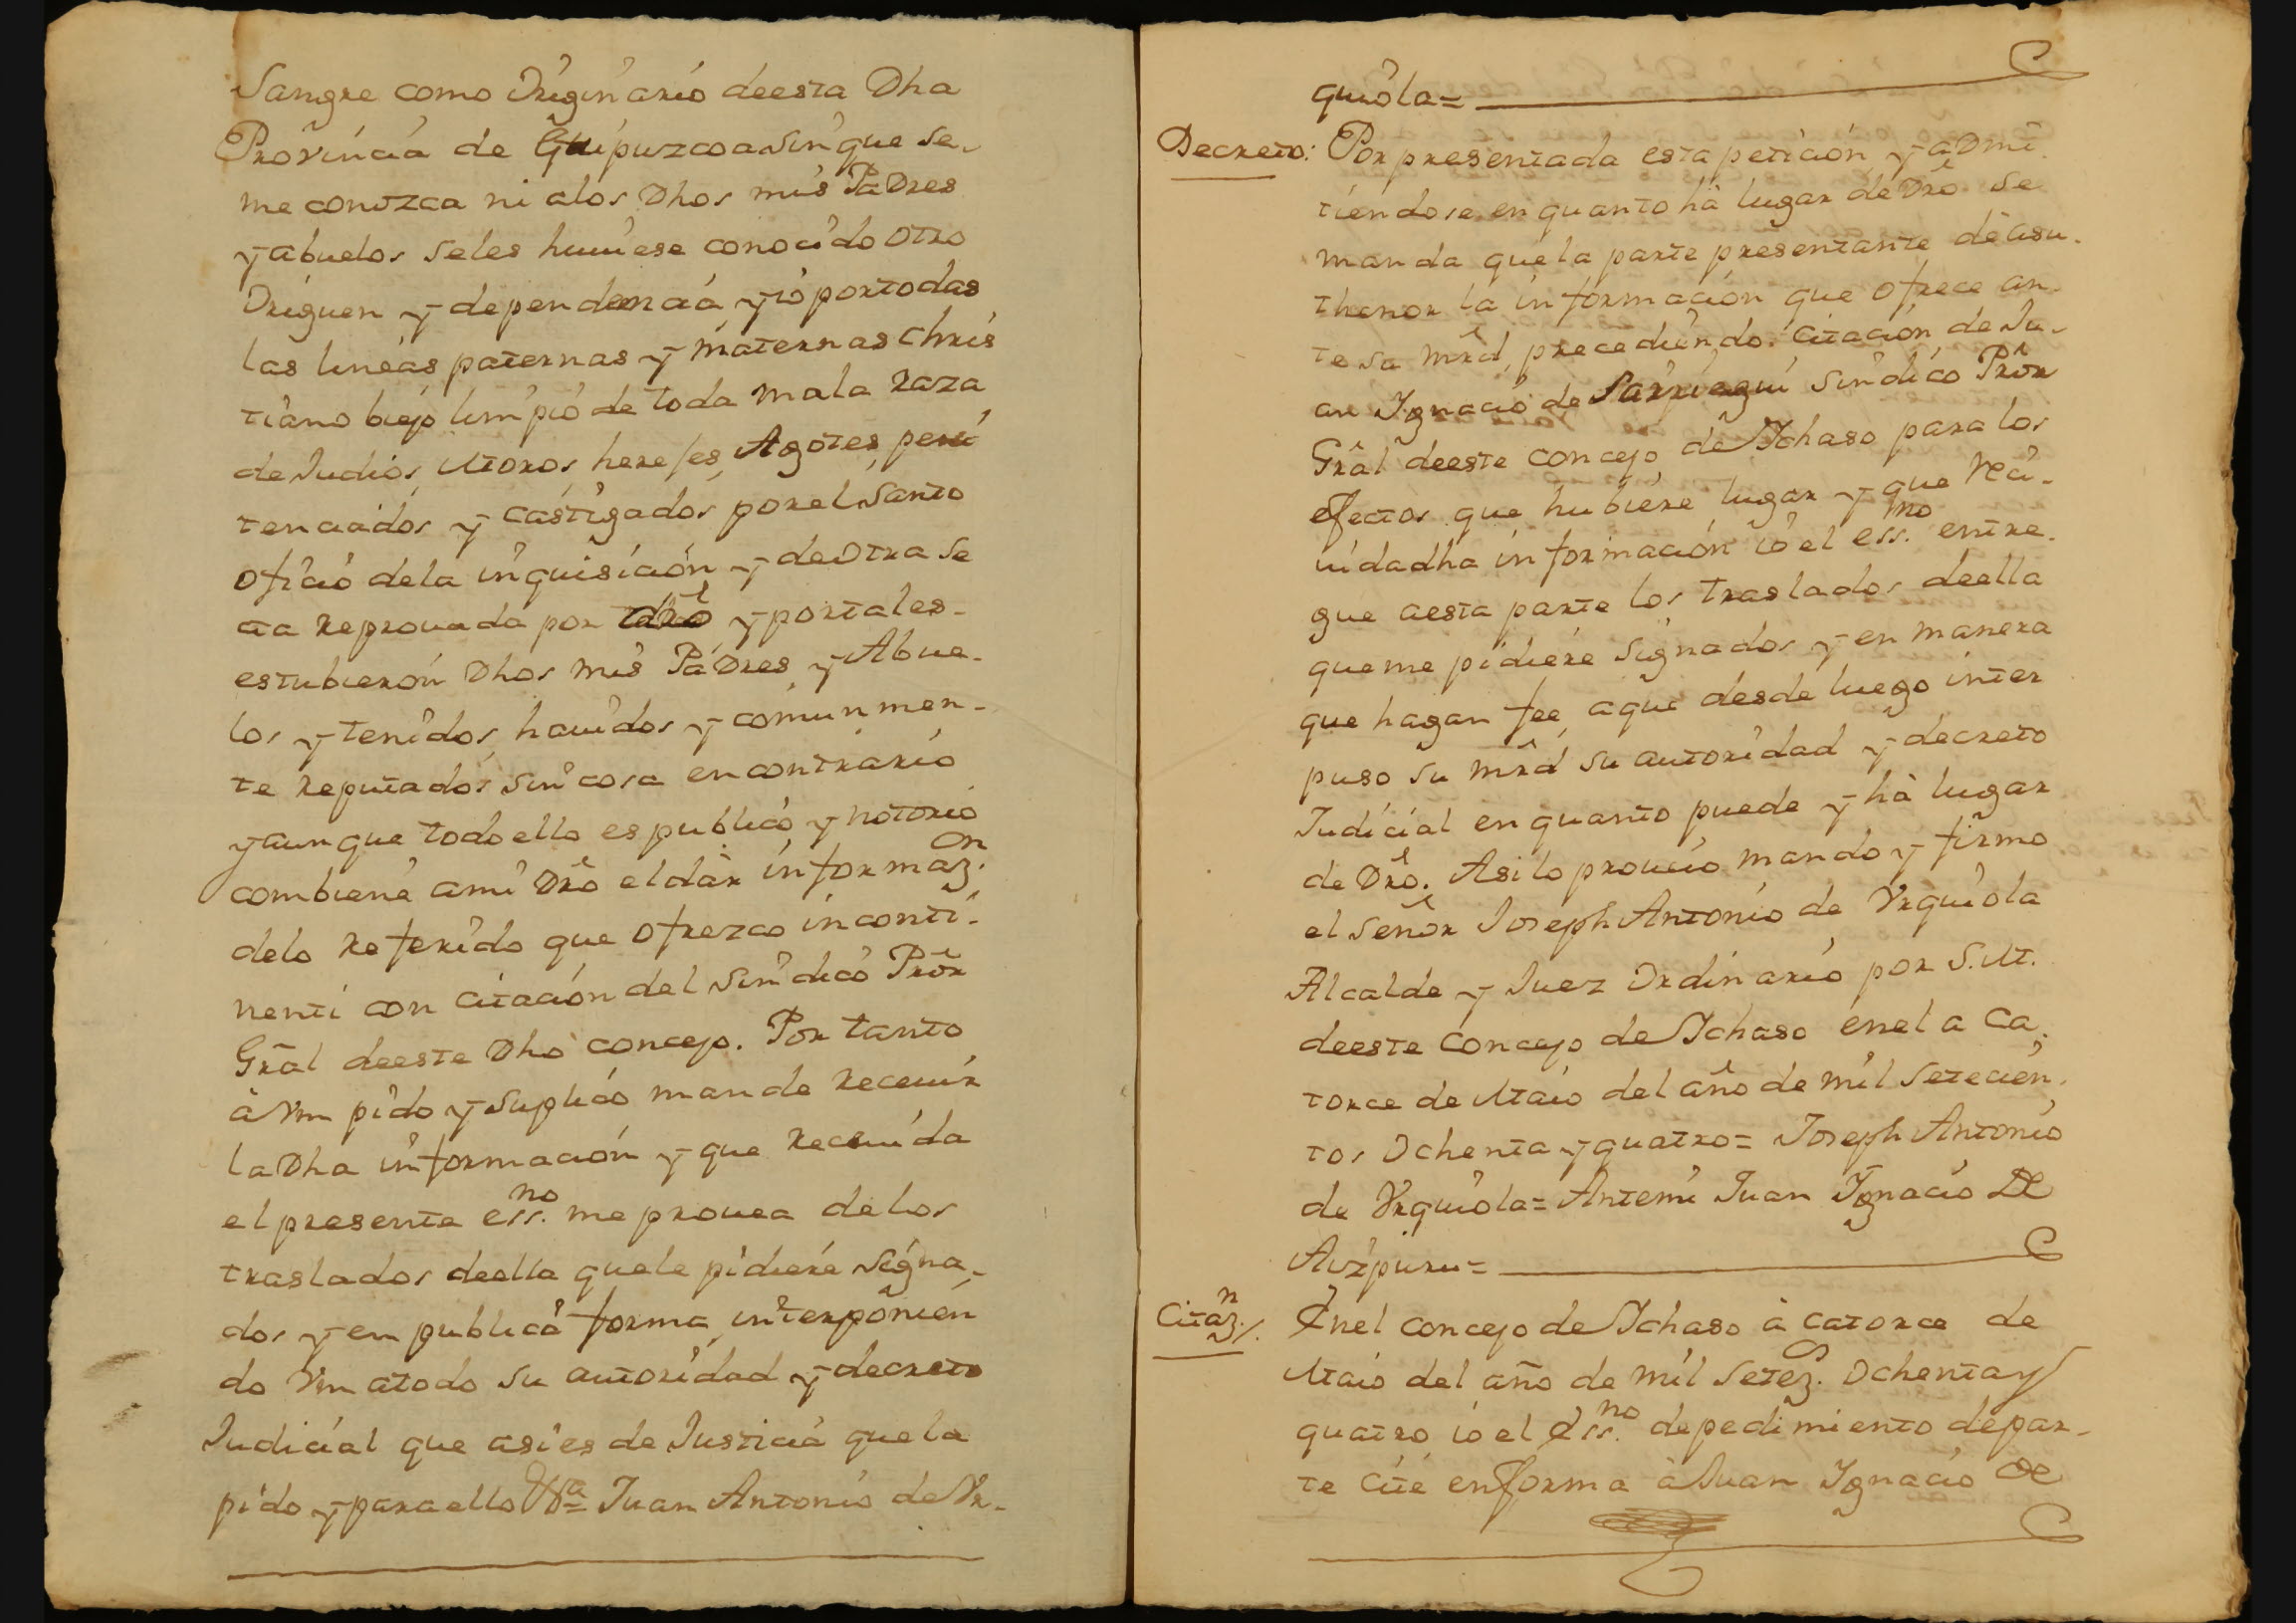 Sangre como Originario deesta Dha
Provincia de Guipuzcoa sin que se-
me conozca ni alos Dhos mis PaDres
y abuelos seles huuiese conocido otro
Origuen y dependencia y io por todas
las lineas paternas y maternas chris
tiano biejo limpio de toda mala raza
de Judios, Moros, herejes, Agotes, peni
tenciados y castigados por el Santo
oficio dela inquisicion y de otra se
cta reprouada por dro y por tales-
estubieron Dhos mis PaDres y Abue-
los y tenidos, hauidos y comunmen-
te reputados sin cosa en contrario
y aunque todo ello es publico y notorio
combiene ami Dro el dar informaz.on
delo referido que ofrezco inconti-
nenti con citacion del sindico Pror
Gral deeste Dho concejo. Por tanto
à Vm pido y suplico mande receuir
la Dha informacion y que receuida
el presente ess.no me prouea de los
traslados deella que le pidiere signa-
dos y en publica forma, interponien
do Vm atodo su autoridad y decreto
Judicial que asi es de Justicia que la
pido y para ello Vª= Juan Antonio de Vr-
quiola=
Decreto: Por presentada esta peticion y aDmi
tiendose en quanto hà lugar de Dro se
manda que la parte presentante dè asu-
thenor la informacion que ofrece an-
te su mrd, precediendo citacion de Ju-
an Ignacio de Sarriegui sindico Pror
Gral deeste concejo de Ichaso para los
efectos que hubiere lugar y que reci-
uida dha informacion io el ess.no entre-
gue aesta parte los traslados deella
que me pidiere signados y en manera
que hagan fee, aque desde luego inter
puso su mrd su autoridad y decreto
Judicial en quanto puede y hà lugar
de Dro. Asi lo proueio mando y firmo
el señor Joseph Antonio de Vrquiola
Alcalde y Juez Ordinario por S.M.
deeste Concejo de Ichaso enel a Ca-
torce de Maio del año de mil setecien-
tos Ochenta y quatro= Joseph Antonio
de Vrquiola= Antemi Juan Ignacio De
Aizpuru=
Citaz.n/. Enel concejo de Ichaso à catorce de
Maio del año de mil setez.s Ochenta y
quatro io el Ess.no de pedimiento de par-
te Cité en forma à Juan Ignacio De